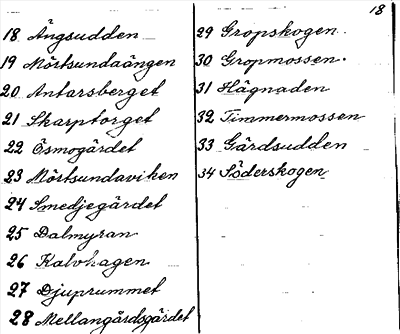 18
18 Ängsudden
19 Mörtsundaängen
20 Antarsberget
21 Skarptorget
22 Ösmogärdet
23 Mörtsundaviken
24 Smedjegärdet
25 Dalmyran
26 Kalvhagen
27 Djuprummet
28 Mellangårdsgärdet
29 Gropskogen
30 Gropmossen
31 Hägnaden
32 Timmermossen
33 Gärdsudden
34 Söderskogen